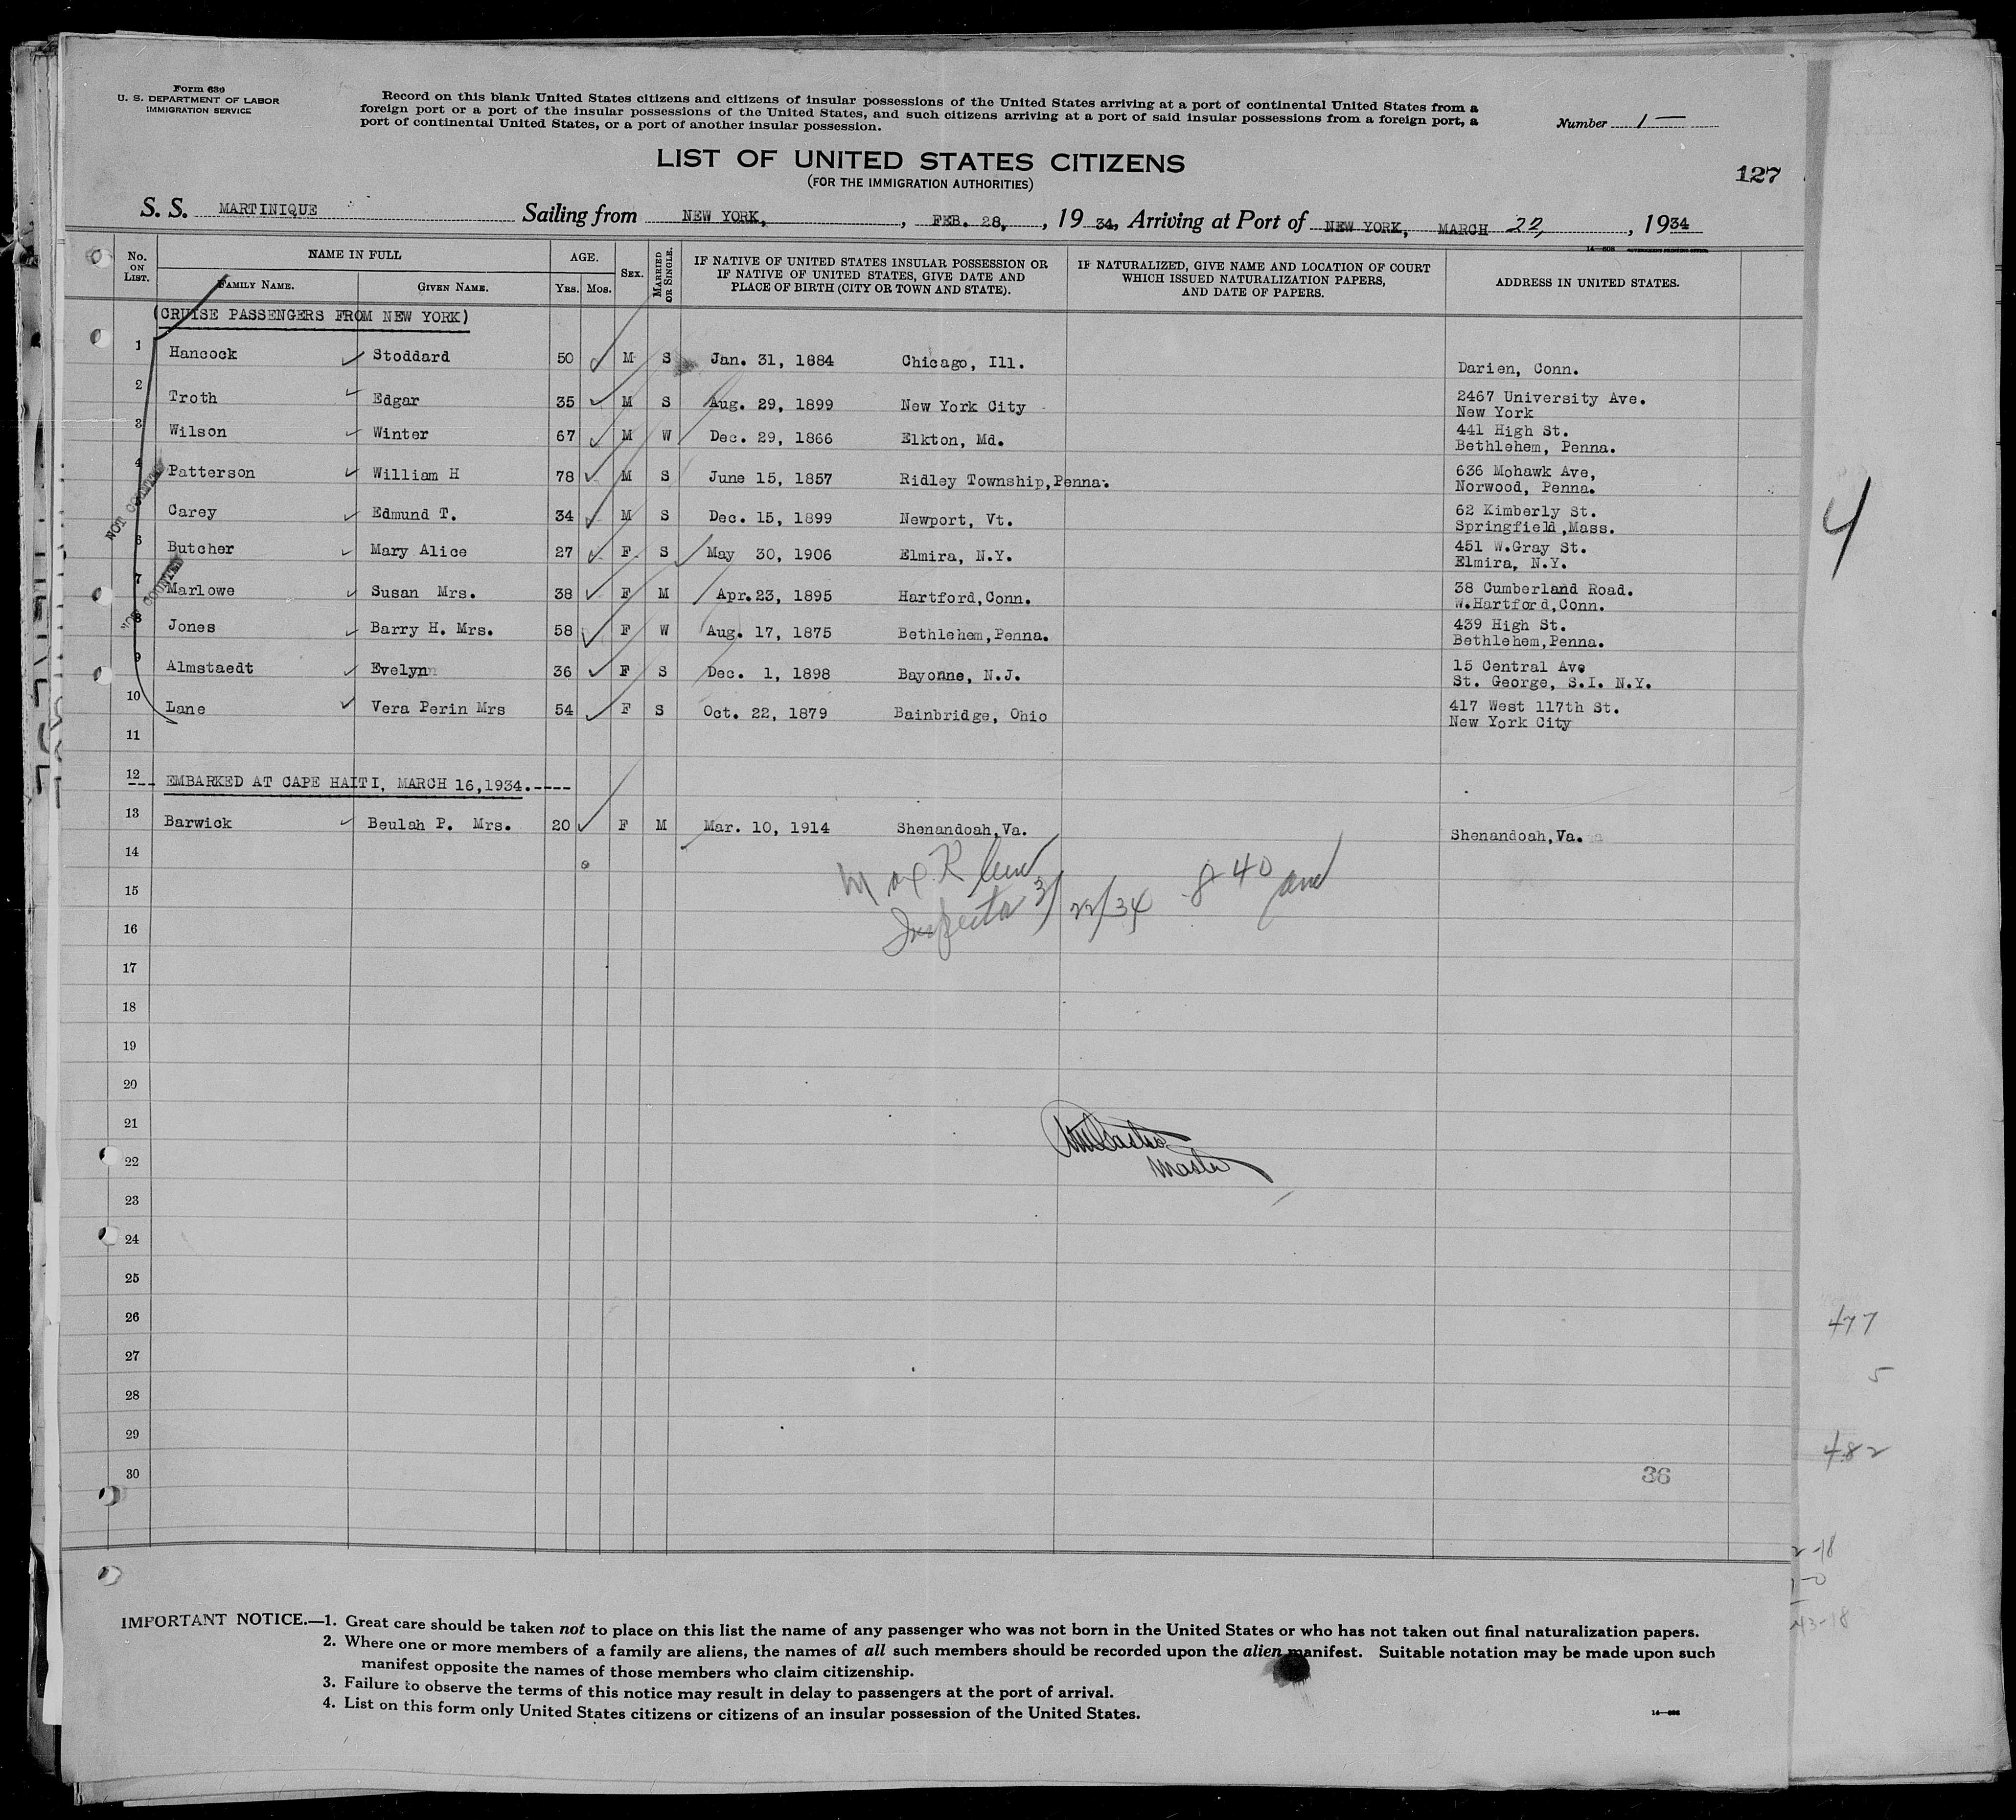 Form 630
U. S. DEPARTMENT OF LABOR
IMMIGRATION SERVICE
Record on this blank United States citizens and citizens of insular possessions of the United States arriving at a port of continental United States from a
foreign port or a port of the insular possessions of the United States, and such citizens arriving at a port of said insular possessions from a foreign port, a
port of continental United States, or a port of another insular possession.
Number 1 —
LIST OF UNITED STATES CITIZENS
(FOR THE IMMIGRATION AUTHORITIES)
127
S. S. MARTINIQUE Sailing from NEW YORK, , FEB. 28, , 19 34, Arriving at Port of NEW YORK, MARCH 22, , 19 34
No. ON LIST. NAME IN FULL FAMILY NAME. GIVEN NAME. AGE. YRS. MOS. SEX. MARRIED OR SINGLE. IF NATIVE OF UNITED STATES INSULAR POSSESSION OR IF NATIVE OF UNITED STATES, GIVE DATE AND PLACE OF BIRTH (CITY OR TOWN AND STATE). IF NATURALIZED, GIVE NAME AND LOCATION OF COURT WHICH ISSUED NATURALIZATION PAPERS, AND DATE OF PAPERS. ADDRESS IN UNITED STATES.
(CRUISE PASSENGERS FROM NEW YORK)
1 Hancock Stoddard 50 M S Jan. 31, 1884 Chicago, Ill. Darien, Conn.
2 Troth Edgar 35 M S Aug. 29, 1899 New York City 2467 University Ave.
New York
3 Wilson Winter 67 M W Dec. 29, 1866 Elkton, Md. 441 High St.
Bethlehem, Penna.
4 Patterson William H 78 M S June 15, 1857 Ridley Township,Penna. 636 Mohawk Ave,
Norwood, Penna.
NOT COUNTED
Carey Edmund T. 34 M S Dec. 15, 1899 Newport, Vt. 62 Kimberly St.
Springfield,Mass.
6 Butcher Mary Alice 27 F S May 30, 1906 Elmira, N.Y. 451 W.Gray St.
Elmira, N.Y.
NOT COUNTED
7 Marlowe Susan Mrs. 38 F M Apr.23, 1895 Hartford,Conn. 38 Cumberland Road.
W.Hartford,Conn.
8 Jones Barry H. Mrs. 58 F W Aug. 17, 1875 Bethlehem,Penna. 439 High St.
Bethlehem,Penna.
9 Almstaedt Evelyn 36 F S Dec. 1, 1898 Bayonne, N.J. 15 Central Ave
St. George, S.I. N.Y.
10 Lane Vera Perin Mrs 54 F S Oct. 22, 1879 Bainbridge, Ohio 417 West 117th St.
New York City
11
12 --- EMBARKED AT CAPE HAITI, MARCH 16,1934.----
13 Barwick Beulah P. Mrs. 20 F M Mar. 10, 1914 Shenandoah,Va. Shenandoah,Va.
14
15
Inspector 3/22/34 8 40 am
16
17
18
19
20
21
22
Master
23
24
25
26
27
28
29
30
36
4
477
5
482
IMPORTANT NOTICE.—1. Great care should be taken not to place on this list the name of any passenger who was not born in the United States or who has not taken out final naturalization papers.
2. Where one or more members of a family are aliens, the names of all such members should be recorded upon the alien manifest. Suitable notation may be made upon such
manifest opposite the names of those members who claim citizenship.
3. Failure to observe the terms of this notice may result in delay to passengers at the port of arrival.
4. List on this form only United States citizens or citizens of an insular possession of the United States.